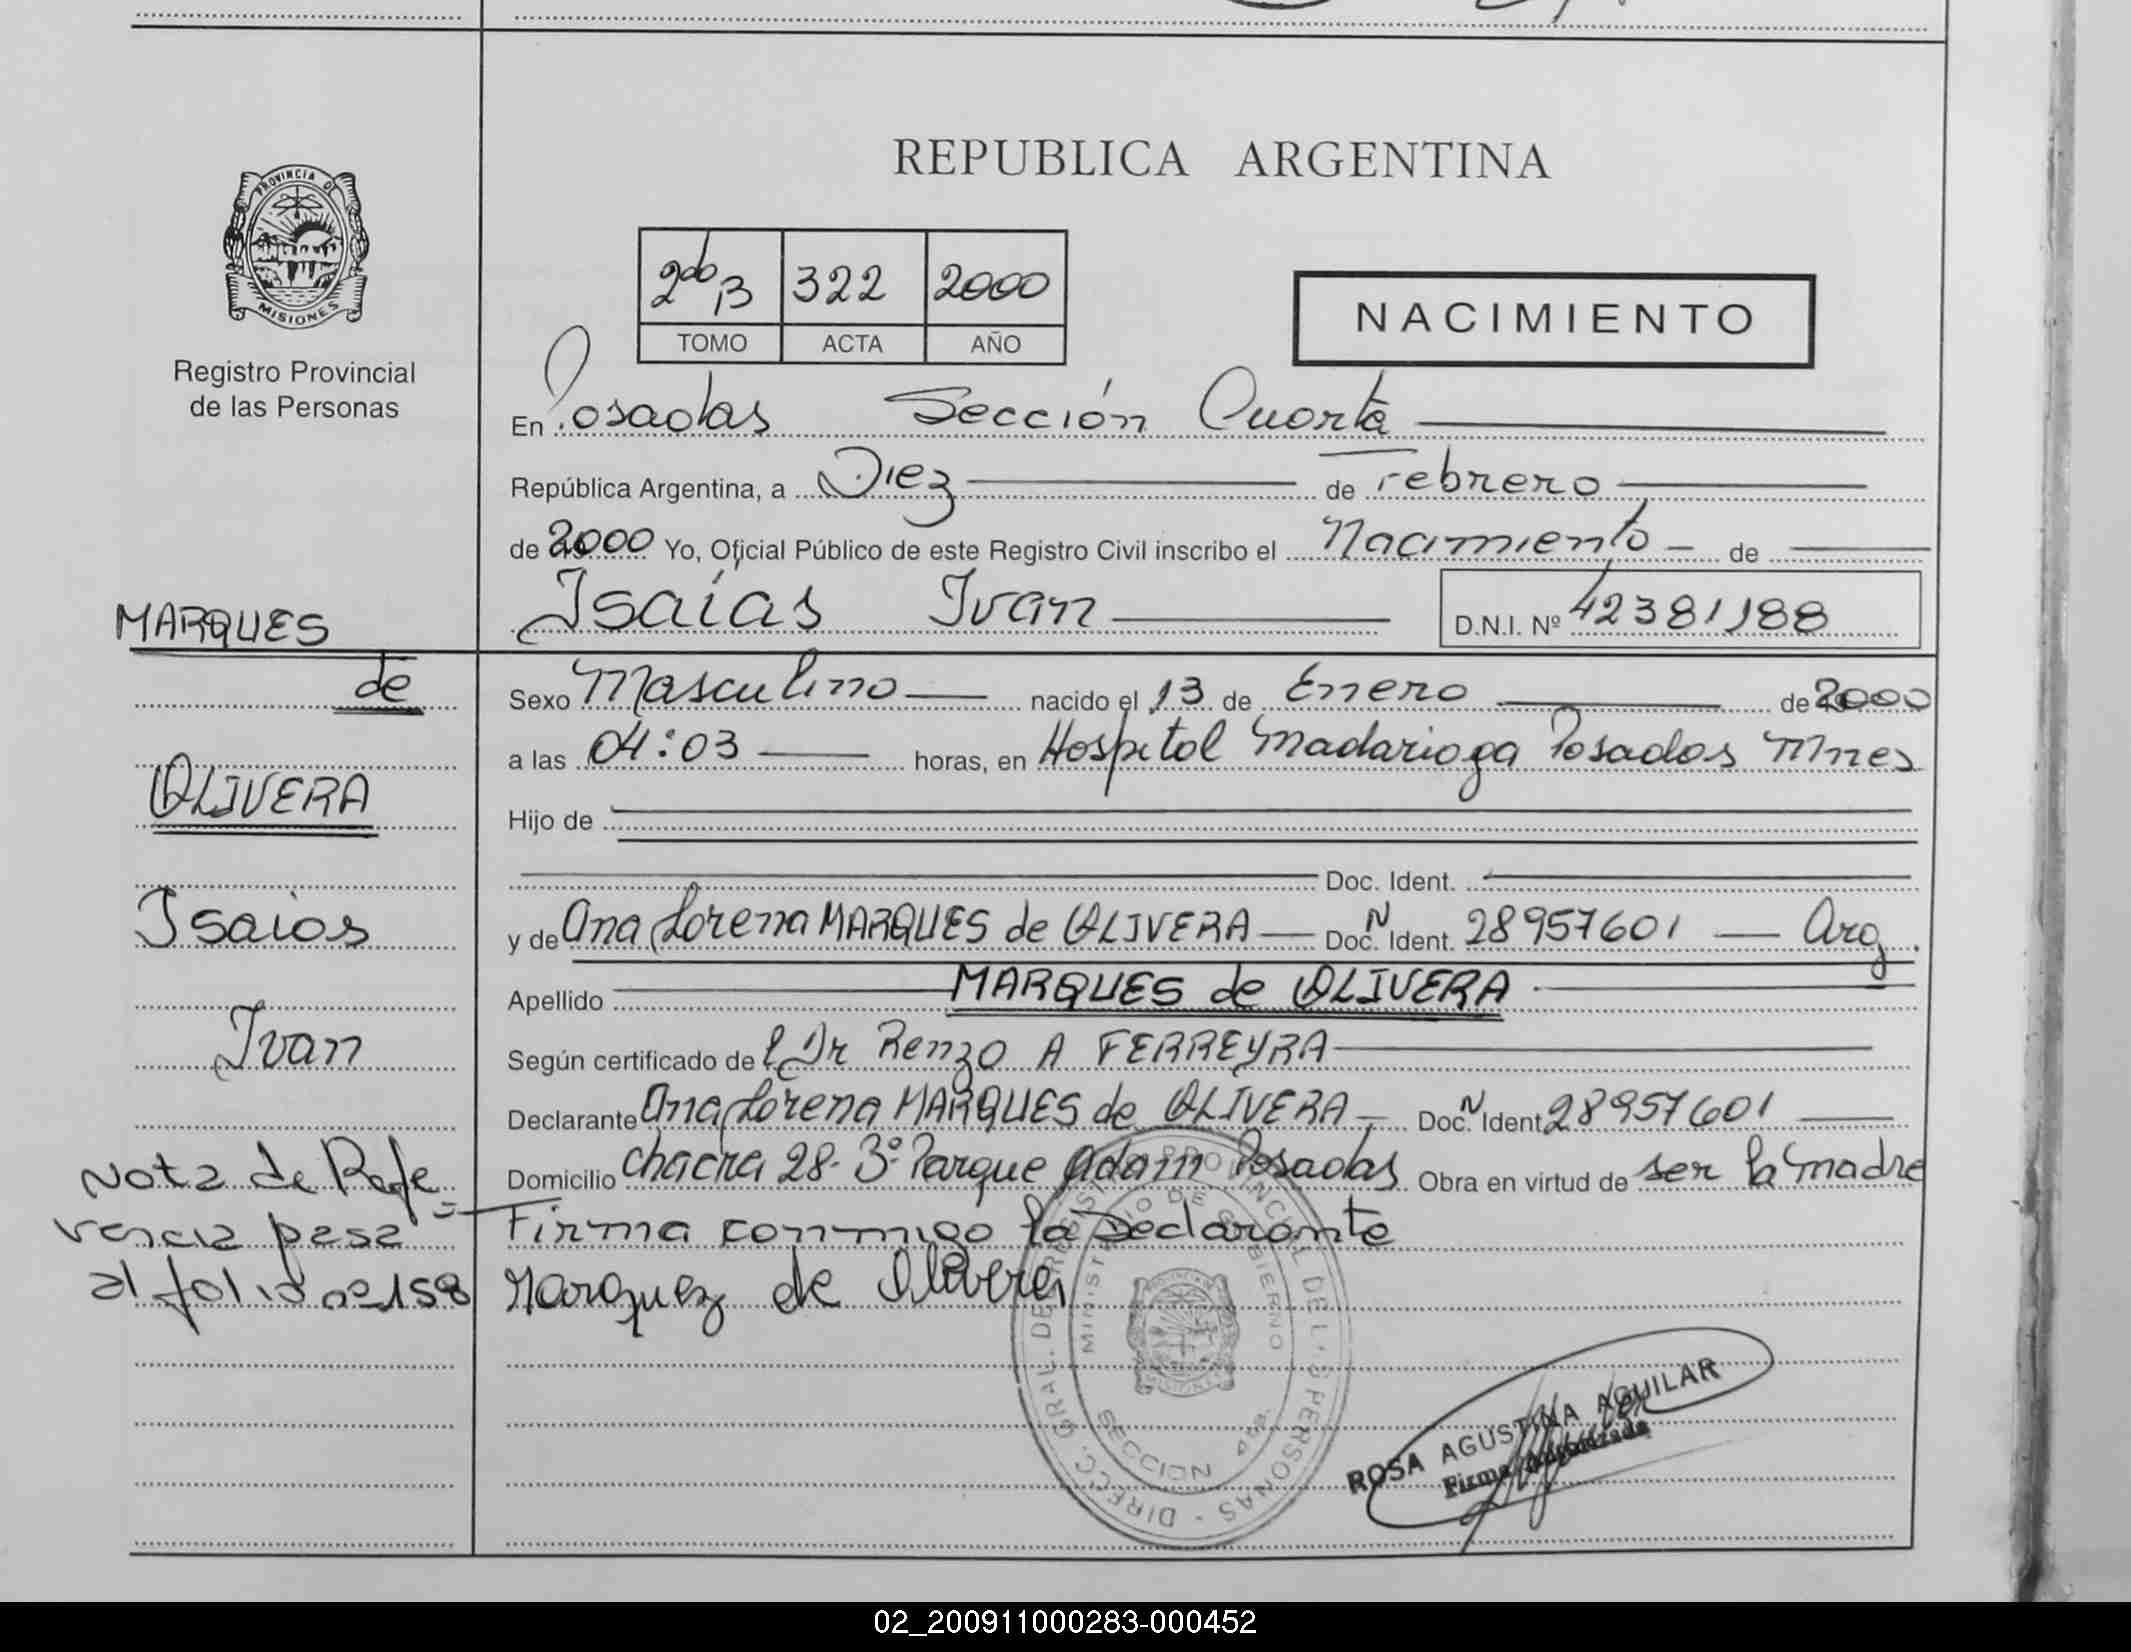 REPUBLICA ARGENTINA
PROVINCIA DE
MISIONES
Registro Provincial
de las Personas
2do B 322 2000
TOMO ACTA AÑO
NACIMIENTO
En Posadas Sección Cuarta
República Argentina, a Diez de Febrero
de 2000 Yo, Oficial Público de este Registro Civil inscribo el Nacimiento de
Isaías Ivan D.N.I. Nº 42381188
MARQUES
de
OLIVERA
Isaias
Ivan
Sexo Masculino nacido el 13 de Enero de 2000
a las 04:03 horas, en Hospital Madariaga Posadas Mnes
Hijo de
Doc. Ident.
y de Ana Lorena MARQUES de OLIVERA Doc. N Ident. 28957601 Arg.
Apellido MARQUES de OLIVERA
Según certificado de l Dr Renzo A FERREYRA
Declarante Ana Lorena MARQUES de OLIVERA Doc. N Ident 28957601
Domicilio chacra 28-3º Parque Adam Posadas Obra en virtud de ser la madre
Firma conmigo la Declarante
Marquez de Olivera
Nota de Refe=
rencia pasa
al folio nº 158
DIRECC. GRAL. DE REGISTRO PROVINCIAL DE L. S PERSONAS -
MINISTERIO DE GOBIERNO
SECCION 4ta.
ROSA AGUSTINA AGUILAR
Firma Autorizada
02_200911000283-000452